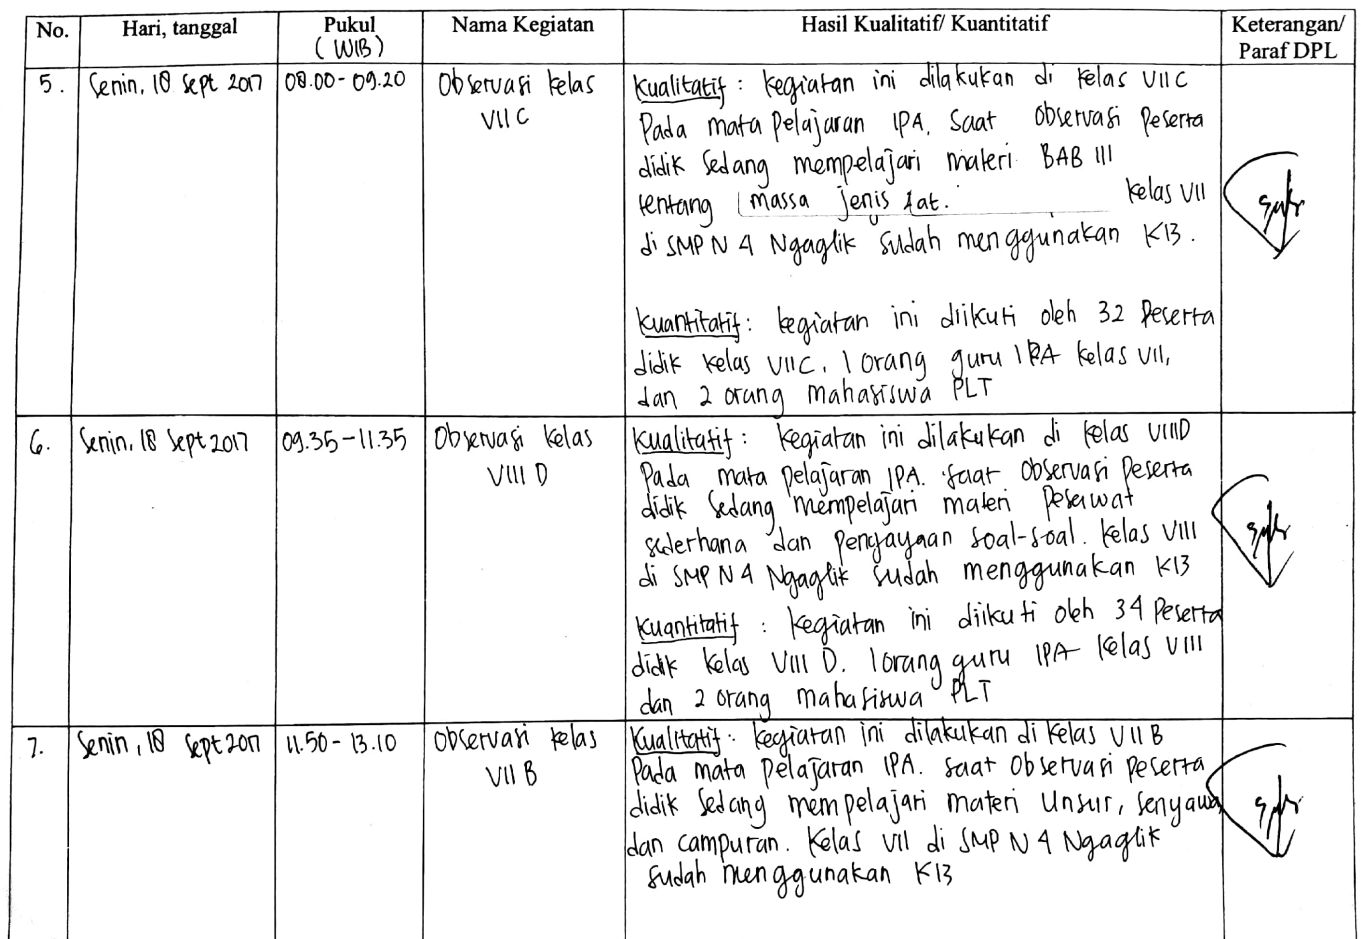 No. Hari, tanggal Pukul Nama Kegiatan Hasil Kualitatif/ Kuantitatif Keterangan/
(WIB) Paraf DPL
5. Senin, 18 Sept 2017 08.00 - 09.20 Observasi kelas
VII C
Kualitatif : kegiatan ini dilakukan di kelas VII C
Pada mata Pelajaran IPA. Saat Observasi Peserta
didik sedang mempelajari materi BAB III
tentang massa jenis zat. kelas VII
di SMP N 4 Ngaglik sudah menggunakan K13.
Kuantitatif : kegiatan ini diikuti oleh 32 Peserta
didik kelas VII C, 1 orang guru IPA kelas VII,
dan 2 orang mahasiswa PLT
6. Senin, 18 Sept 2017 09.35 - 11.35 Observasi kelas
VIII D
Kualitatif : kegiatan ini dilakukan di kelas VIIID
Pada mata pelajaran IPA. saat observasi Peserta
didik sedang mempelajari materi Pesawat
sederhana dan pengayaan soal-soal. kelas VIII
di SMP N 4 Ngaglik sudah menggunakan K13
Kuantitatif : kegiatan ini diikuti oleh 34 Peserta
didik kelas VIII D. 1 orang guru IPA kelas VIII
dan 2 orang mahasiswa PLT
7. Senin, 18 Sept 2017 11.50 - 13.10 Observasi kelas
VII B
Kualitatif : kegiatan ini dilakukan di kelas VII B
Pada mata pelajaran IPA. saat Observasi peserta
didik sedang mempelajari materi Unsur, senyawa,
dan campuran. Kelas VII di SMP N 4 Ngaglik
sudah menggunakan K13